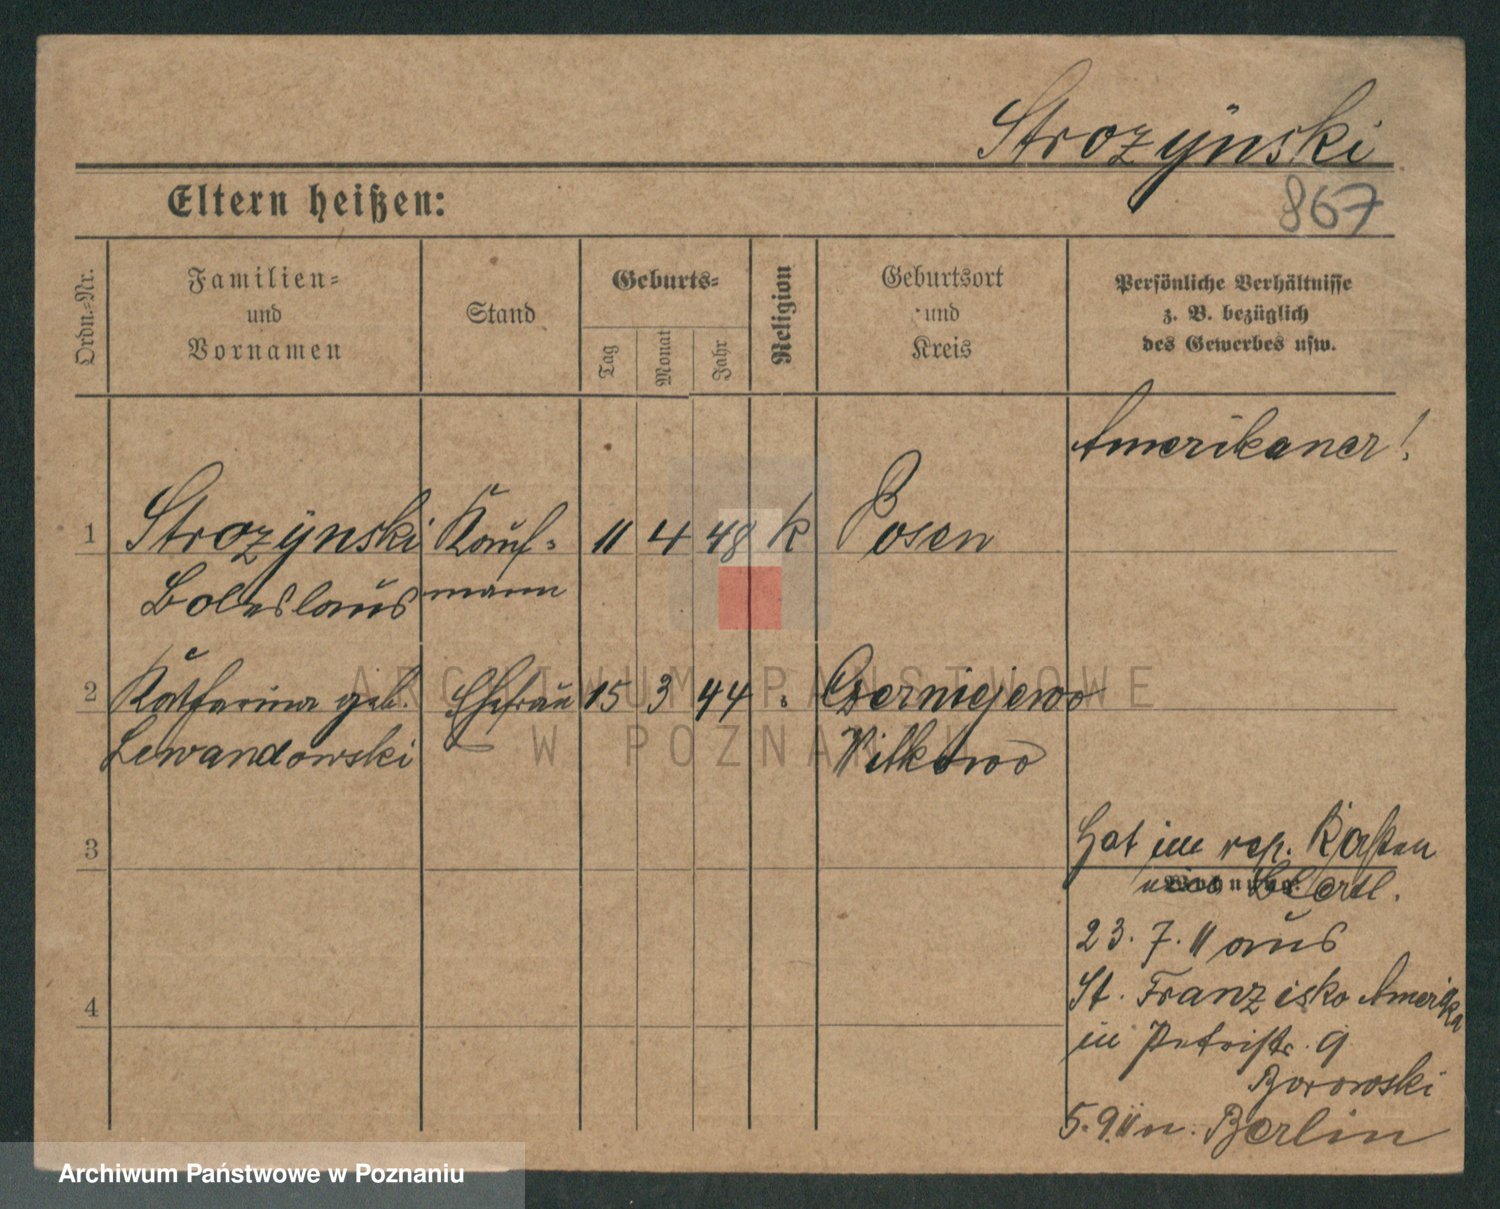 Strozÿnski
Eltern heißen:
867
Ordn.-Nr.
Familien-
und
Vornamen
Stand
Geburts-
Tag
Monat
Jahr
Religion
Geburtsort
und
Kreis
Persönliche Verhältnisse
z. B. bezüglich
des Gewerbes usw.
Amerikaner!
1 Strozÿnski Kauf- 11 4 48 K Posen
Boleslaus mann
2 Katharina geb. Ehefrau 15 3 44 " Czerniejewo
Lewandowski Witkowo
3
Hat im rep. Kasten
Wohnung.
23. 7. 11 aus
4
St. Franzisko Amerika
in Petristr. 9
Borowski
5. 9. 11 n. Berlin
ARCHIWUM PAŃSTWOWE
W POZNANIU
Archiwum Państwowe w Poznaniu